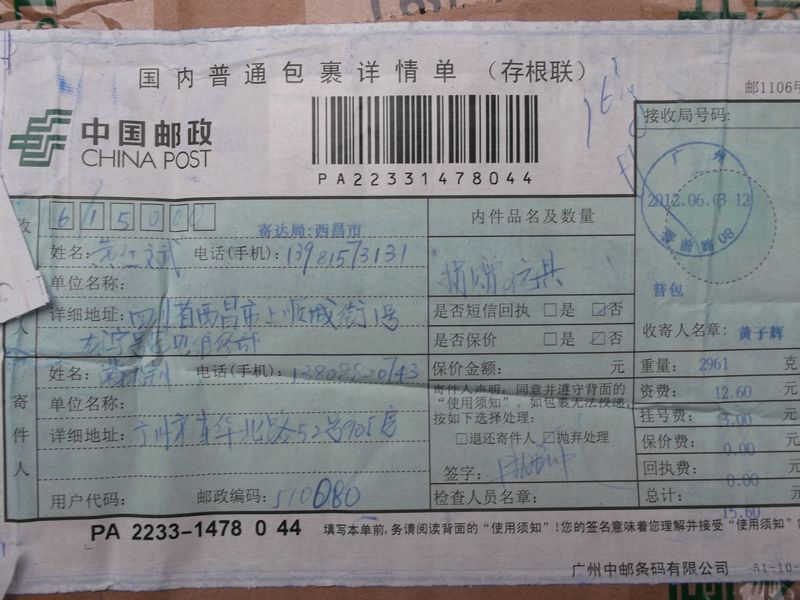 国内普通包裹详情单 (存根联)
邮1106
中国邮政
CHINA POST
PA22331478044
接收局号码:
广州
2012.06.03 12
08
收
615000
寄达局:西昌市
内件品名及数量
姓名:
电话(手机):13981573131
单位名称:
捐赠
普包
详细地址:四川省西昌市上顺城街1号
是否短信回执 □是 ☑否
是否保价 □是 ☑否
收寄人名章: 黄子辉
人
姓名:
电话(手机):13808820743
保价金额: 元
重量: 2961 克
寄件人
单位名称:
寄件人声明: 同意并遵守背面的
“使用须知”, 如包裹无法投递,
按如下选择处理:
资费: 12.60 元
挂号费: 3.00 元
详细地址:广州市 华北路52号905房
□退还寄件人 ☑抛弃处理
保价费: 0.00 元
签字:
回执费: 0.00 元
用户代码:
邮政编码:510080
检查人员名章:
总计: 15.60 元
PA 2233-1478 0 44
填写本单前,务请阅读背面的“使用须知”!您的签名意味着您理解并接受“使用须知
广州中邮条码有限公司